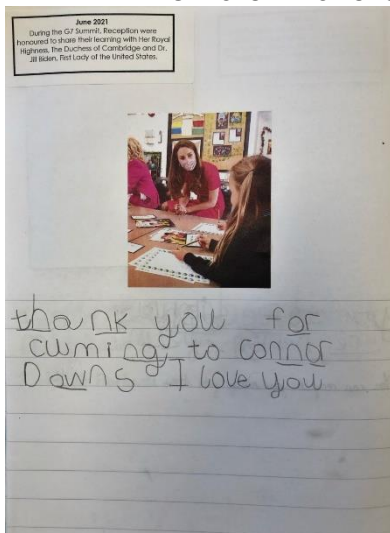 June 2021
During the G7 Summit, Reception were
honoured to share their learning with Her Royal
Highness, The Duchess of Cambridge and Dr.
Jill Biden, First Lady of the United States.
thank you for
cuming to connor
Downs I love you